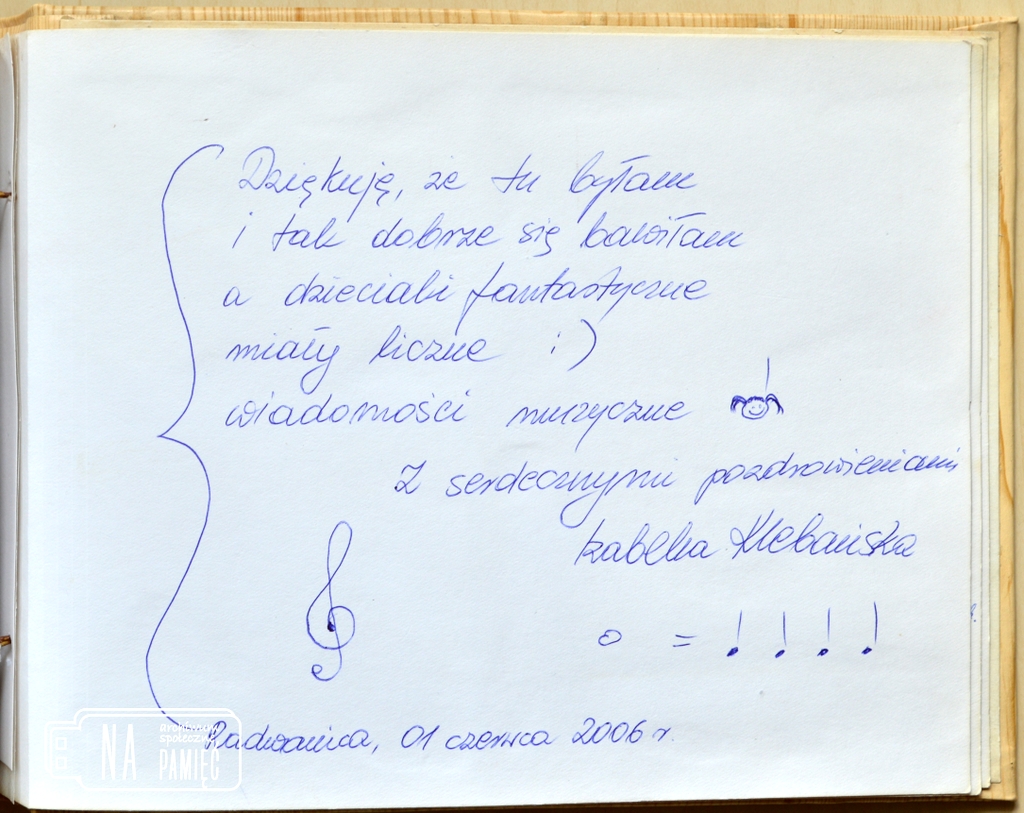 Dziękuję, że tu byłam
i tak dobrze się bawiłam
a dzieciaki fantastyczne
miały liczne :)
wiadomości muzyczne
Z serdecznymi pozdrowieniami
Izabella Klebańska
Radwanica, 01 czerwca 2006 r.
NA archiwum
społeczne
PAMIĘĆ